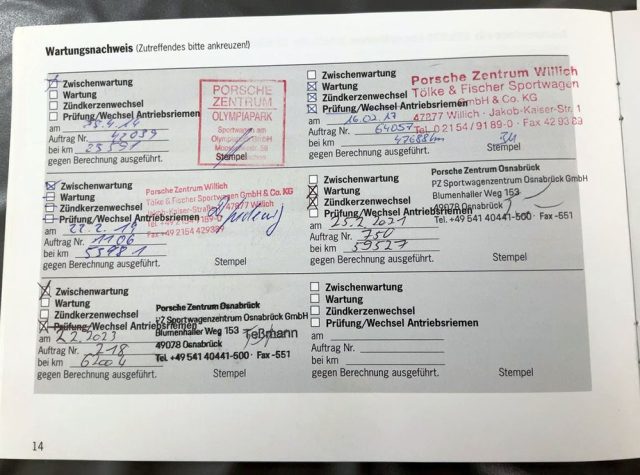 Wartungsnachweis (Zutreffendes bitte ankreuzen!)
Zwischenwartung
Wartung
Zündkerzenwechsel
Prüfung/Wechsel Antriebsriemen
am 28.4.14
Auftrag Nr. 42039
bei km 23591
gegen Berechnung ausgeführt.
Stempel
PORSCHE
ZENTRUM
OLYMPIAPARK
Sportwagen am
Olympiapark GmbH
Zwischenwartung
Wartung
Zündkerzenwechsel
Prüfung/Wechsel Antriebsriemen
am 16.02.17
Auftrag Nr. 64057
bei km 47688km
gegen Berechnung ausgeführt.
Stempel
Porsche Zentrum Willich
Tölke & Fischer Sportwagen
GmbH & Co. KG
47877 Willich - Jakob-Kaiser-Str. 1
Tel. 0 21 54 / 91 89-0 · Fax
Zwischenwartung
Wartung
Zündkerzenwechsel
Prüfung/Wechsel Antriebsriemen
am 22.2.19
Auftrag Nr. 1106
bei km 55981
gegen Berechnung ausgeführt.
Stempel
Porsche Zentrum Willich
Tölke & Fischer Sportwagen GmbH & Co. KG
47877 Willich
Zwischenwartung
Wartung
Zündkerzenwechsel
Prüfung/Wechsel Antriebsriemen
am 25.2.2021
Auftrag Nr. 750
bei km 59527
gegen Berechnung ausgeführt.
Stempel
Porsche Zentrum Osnabrück
PZ Sportwagenzentrum Osnabrück GmbH
Blumenhaller Weg 153
49078 Osnabrück
Tel. +49 541 40441-500 · Fax -551
Zwischenwartung
Wartung
Zündkerzenwechsel
Prüfung/Wechsel Antriebsriemen
am 2.2.2023
Auftrag Nr. 218
bei km 62004
gegen Berechnung ausgeführt.
Stempel
Porsche Zentrum Osnabrück
PZ Sportwagenzentrum Osnabrück GmbH
Blumenhaller Weg 153
49078 Osnabrück
Tel. +49 541 40441-500 · Fax -551
Teßmann
Zwischenwartung
Wartung
Zündkerzenwechsel
Prüfung/Wechsel Antriebsriemen
am
Auftrag Nr.
bei km
gegen Berechnung ausgeführt.
Stempel
14